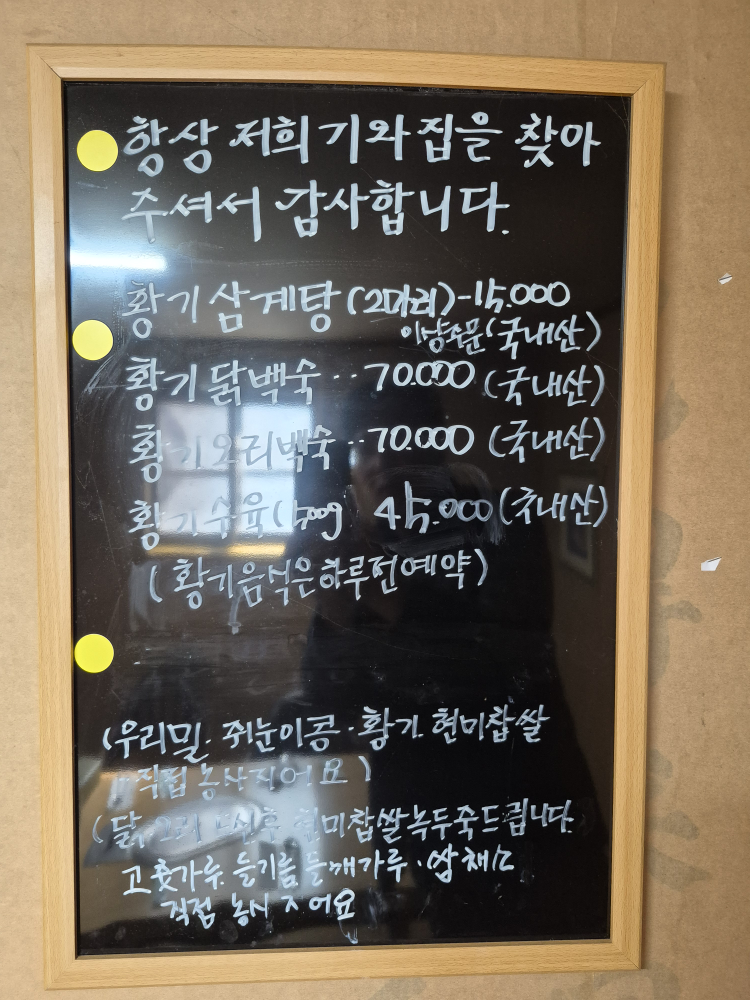 항상 저희 기와집을 찾아
주셔서 감사합니다.
황기삼계탕(2마리)-15.000
이상주문(국내산)
황기닭백숙‥70.000(국내산)
황기오리백숙‥70.000(국내산)
황기수육(500g 45.000(국내산)
(황기음식은하루전예약)
(우리밀. 쥐눈이콩·황기 현미찹쌀
직접 농사지어요)
(닭.오리 드신후 현미찹쌀녹두죽드립니다.
고춧가루.들기름 들깨가루·쌈채소
직접 농사 지어요